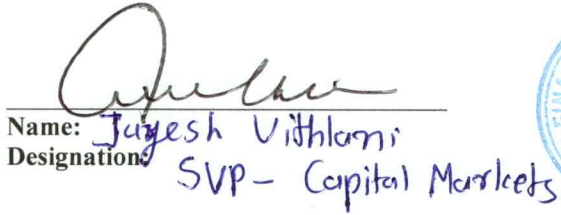 Name: Jayesh Vithlani
Designation: SVP - Capital Markets